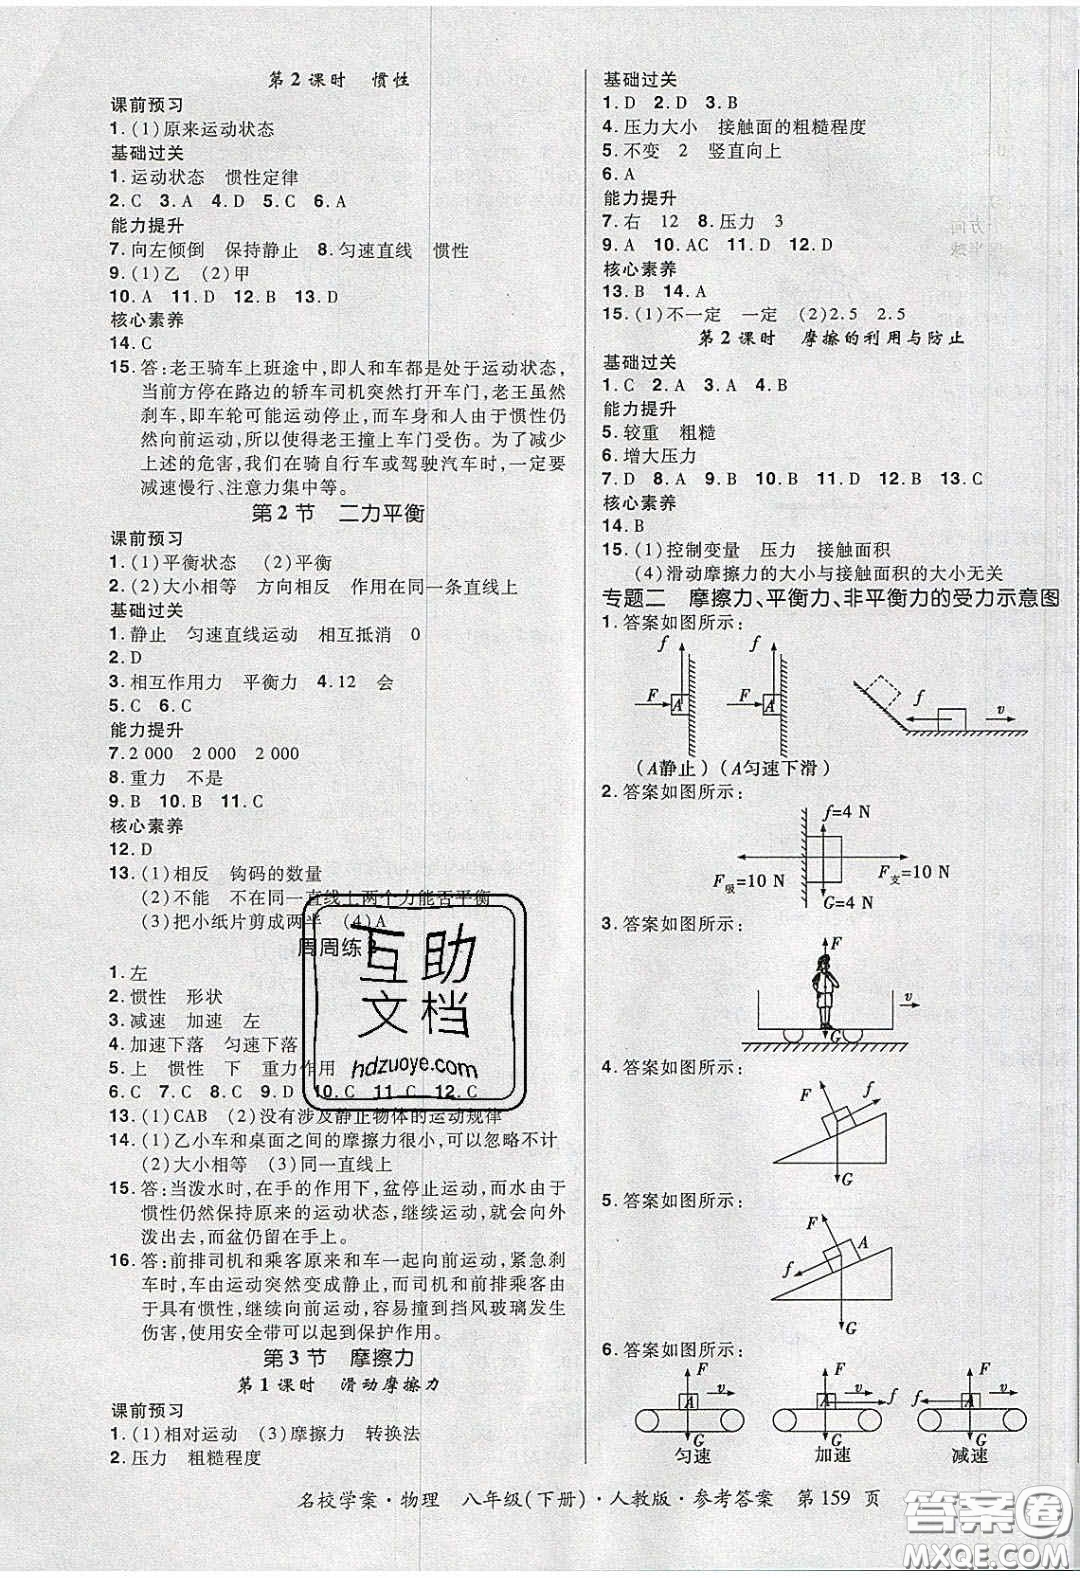 第2课时　惯性
课前预习
1.(1)原来运动状态
基础过关
1.运动状态　惯性定律
2.C　3.A　4.D　5.C　6.A
能力提升
7.向左倾倒　保持静止　8.匀速直线　惯性
9.(1)乙　(2)甲
10.A　11.D　12.B　13.D
核心素养
14.C
15.答:老王骑车上班途中,即人和车都是处于运动状态,
当前方停在路边的轿车司机突然打开车门,老王虽然
刹车,即车轮可能运动停止,而车身和人由于惯性仍
然向前运动,所以使得老王撞上车门受伤。为了减少
上述的危害,我们在骑自行车或驾驶汽车时,一定要
减速慢行、注意力集中等。
第2节　二力平衡
课前预习
1.(1)平衡状态　(2)平衡
2.(2)大小相等　方向相反　作用在同一条直线上
基础过关
1.静止　匀速直线运动　相互抵消　0
2.D
3.相互作用力　平衡力　4.12　会
5.C　6.C
能力提升
7.2 000　2 000　2 000
8.重力　不是
9.B　10.B　11.C
核心素养
12.D
13.(1)相反　钩码的数量
(2)不能　不在同一直线上两个力能否平衡
(3)把小纸片剪成两半　(4)A
周周练
1.左
2.惯性　形状
3.减速　加速　左
4.加速下落　匀速下落
5.上　惯性　下　重力作用
6.C　7.C　8.C　9.D　10.C　11.C　12.C
13.(1)CAB　(2)没有涉及静止物体的运动规律
14.(1)乙小车和桌面之间的摩擦力很小,可以忽略不计
(2)大小相等　(3)同一直线上
15.答:当泼水时,在手的作用下,盆停止运动,而水由于
惯性仍然保持原来的运动状态,继续运动,就会向外
泼出去,而盆仍留在手上。
16.答:前排司机和乘客原来和车一起向前运动,紧急刹
车时,车由运动突然变成静止,而司机和前排乘客由
于具有惯性,继续向前运动,容易撞到挡风玻璃发生
伤害,使用安全带可以起到保护作用。
第3节　摩擦力
第1课时　滑动摩擦力
课前预习
1.(1)相对运动　(3)摩擦力　转换法
2.压力　粗糙程度
基础过关
1.D　2.D　3.B
4.压力大小　接触面的粗糙程度
5.不变　2　竖直向上
6.A
能力提升
7.右　12　8.压力　3
9.A　10.AC　11.D　12.D
核心素养
13.B　14.A
15.(1)不一定　一定　(2)2.5　2.5
第2课时　摩擦的利用与防止
基础过关
1.C　2.A　3.D　4.B
能力提升
5.较重　粗糙
6.增大压力
7.D　8.D　9.A　10.B　11.D　12.B　13.C
核心素养
14.B
15.(1)控制变量　压力　接触面积
(4)滑动摩擦力的大小与接触面积的大小无关
专题二　摩擦力、平衡力、非平衡力的受力示意图
1.答案如图所示:
f　f
F　A　F　A　f　v
(A静止)(A匀速下滑)
2.答案如图所示:
f=4 N
F吸=10 N　F支=10 N
G=4 N
3.答案如图所示:
F
v
G
4.答案如图所示:
F　f
G
5.答案如图所示:
F　A
f
G
6.答案如图所示:
F　v　F　v　F　v
A　A　f　f　A
G　G　G
匀速　加速　减速
名校学案·物理　八年级(下册)·人教版·参考答案　第159页
互助
文档
hdzuoye.com
答案圈
MXQE.COM